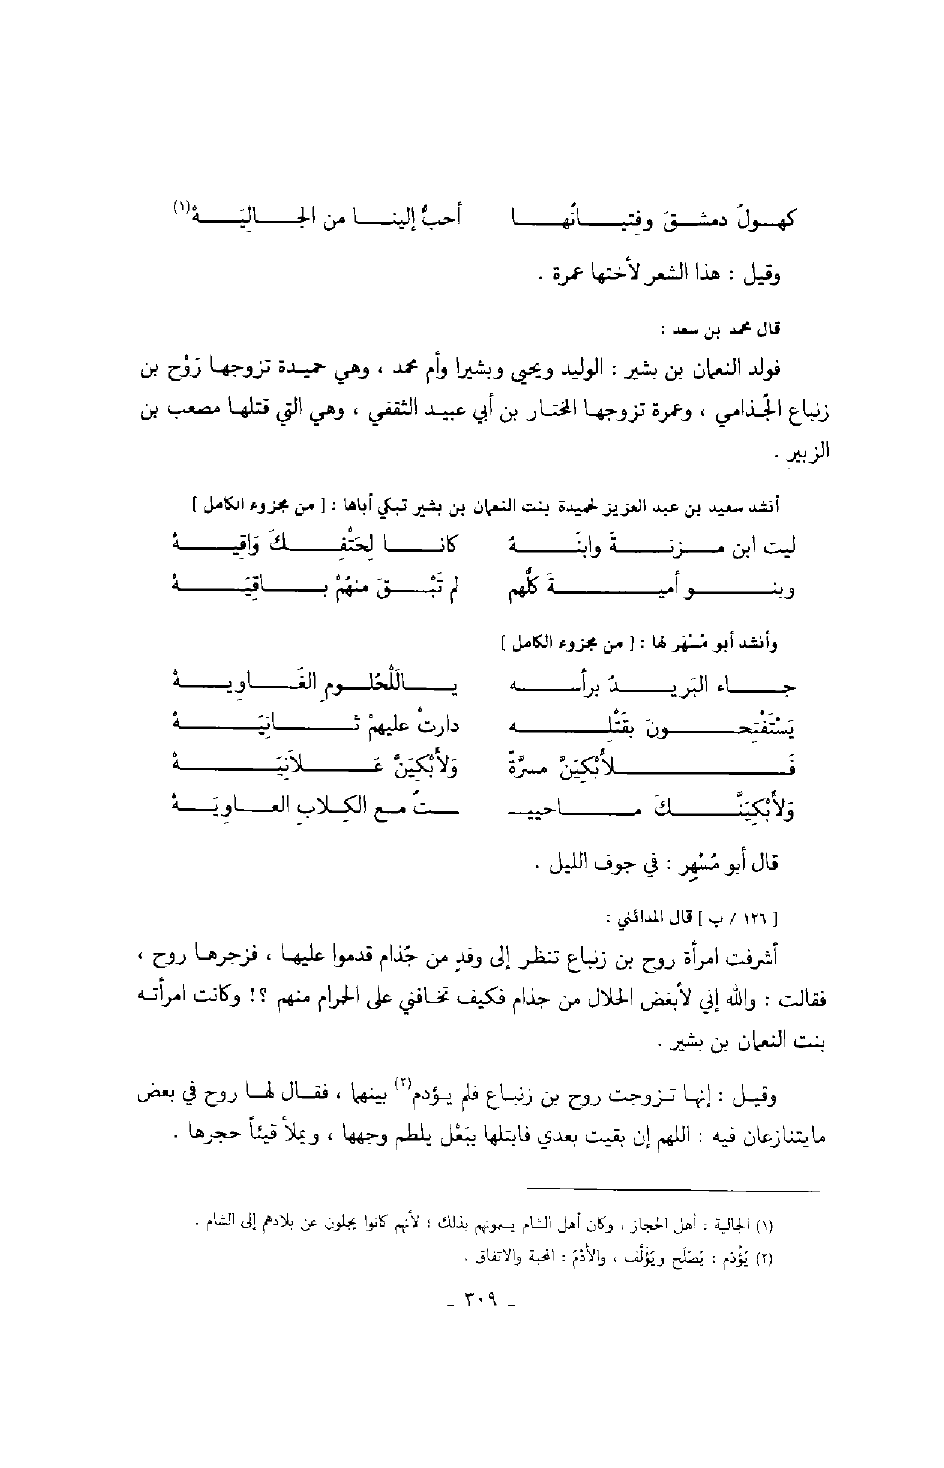 كهولُ دمشقَ وفتيانُها أحبُّ إلينا من الجاليَهْ(١)
وقيل : هذا الشعر لأختها عمرة .
قال محمد بن سعد :
فولد النعمان بن بشير : الوليد ويحيى وبشيرا وأم محمد ، وهي حميدة تزوجها رَوْح بن
زنباع الجُذامي ، وعمرة تزوجها المختار بن أبي عبيد الثقفي ، وهي التي قتلها مصعب بن
الزبير .
أنشد سعيد بن عبد العزيز لحميدة بنت النعمان بن بشير تبكي أباها : [ من مجزوء الكامل ]
ليت ابن مزنةَ وابنَهُ كانا لِحَتْفِكَ وَاقِيهْ
وبنو أميةَ كلُّهم لم تَبْقَ منهُمْ باقِيَهْ
وأنشد أبو مُسْهر لها : [ من مجزوء الكامل ]
جاء البَريدُ برأسه يالَلْحُلومِ الغَاويهْ
يَسْتَفْتِحونَ بقَتْلِه دارتْ عليهمْ ثانيَهْ
فَلأبْكيَنَّ مسرَّةً وَلأبْكيَنَّ عَلاَنيَهْ
وَلأبْكِيَنَّكَ ماحييـ ـتُ مع الكلابِ العاويَهْ
قال أبو مُسْهِر : في جوف الليل .
[ ١٢٦ / ب ] قال المدائني :
أشرفت امرأة روح بن زنباع تنظر إلى وفدٍ من جُذام قدموا عليها ، فزجرها روح ،
فقالت : والله إني لأبغض الحلال من جذام فكيف تخافني على الحرام منهم ؟! وكانت امرأته
بنت النعمان بن بشير .
وقيل : إنها تزوجت روح بن زنباع فلم يؤدم(٢) بينهما ، فقال لها روح في بعض
مايتنازعان فيه : اللهم إن بقيت بعدي فابتلها ببَعْل يلطم وجهها ، ويملأ قيئاً حجرها .
(١) الجالية : أهل الحجاز ، وكان أهل الشام يسمونهم بذلك ؛ لأنهم كانوا يجلون عن بلادهم إلى الشام .
(٢) يُؤْدَم : يُصْلَح ويُؤلَّف ، والأُدْمُ : المحبة والاتفاق .
ـ ٣٠٩ ـ